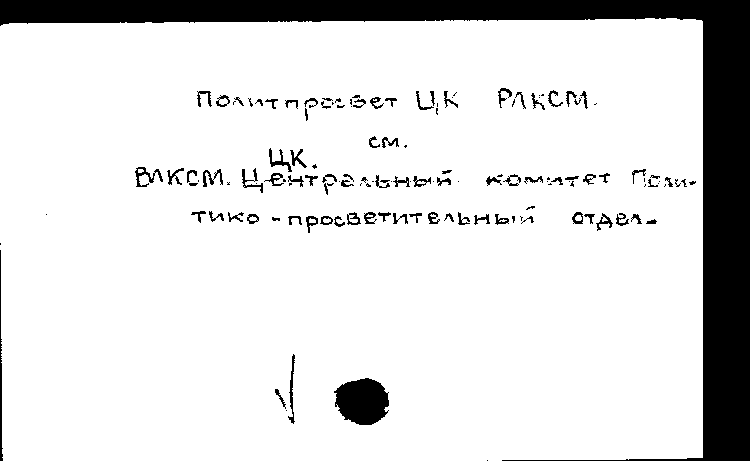 Политпросвет ЦК РЛКСМ.
см.
ЦК.
ВЛКСМ. Центральный комитет Поли-
тико-просветительный отдел.